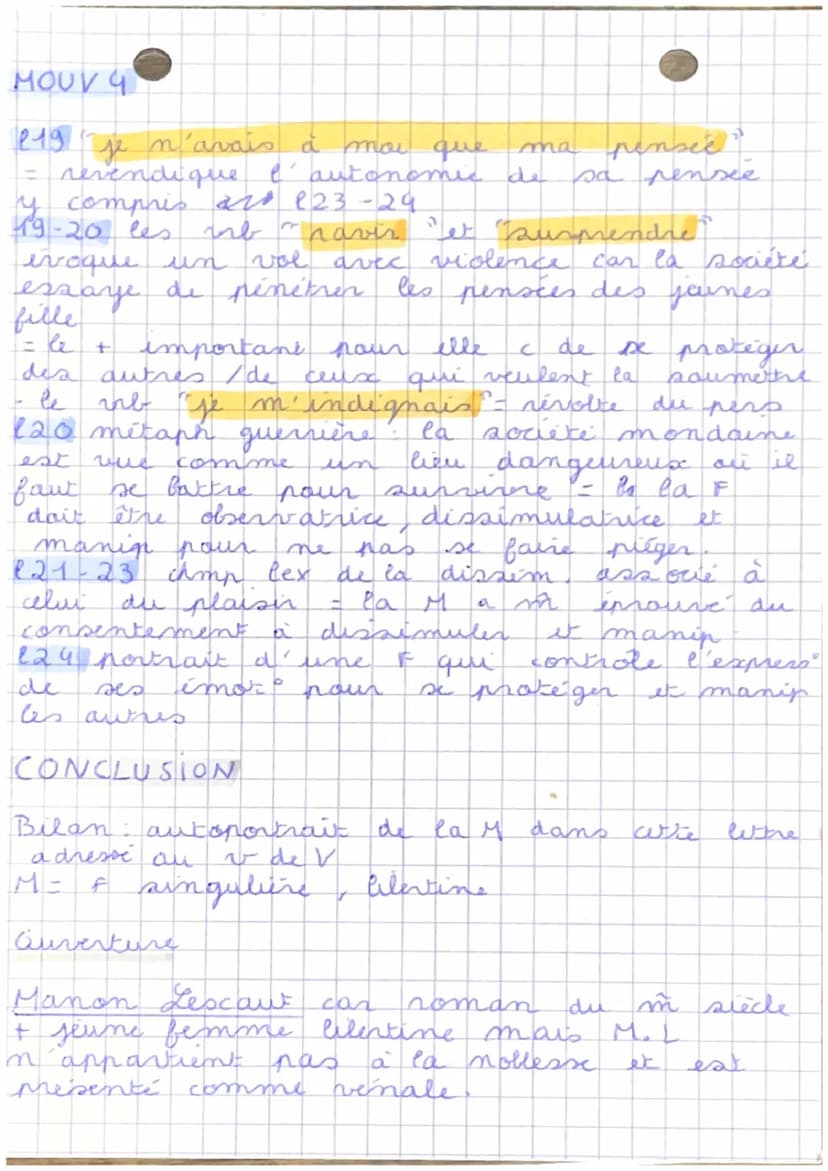 MOUV 4
l19 "je n'avais à moi que ma pensée"
= revendique l'autonomie de sa pensée
y compris l23-24
19-20 les vrb "ravir" et "surprendre"
évoque un vol avec violence car la société
essaye de pénétrer les pensées des jeunes
fille
= le + important pour elle c de se protéger
des autres / de ceux qui veulent la soumettre
- le vrb "je m'indignais" = révolte du pers
l20 métaph guerrière : la société mondaine
est vue comme un lieu dangeureux où il
faut se battre pour survivre = la F
doit être observatrice, dissimulatrice et
manip pour ne pas se faire piéger.
l21-23 chmp lex de la dissim. associé à
celui du plaisir = la M a m̃ éprouvé du
consentement à dissimuler et manip
l24 portrait d'une F qui contrôle l'express°
de ses émot° pour se protéger et manip
les autres
CONCLUSION
Bilan : autoportrait de la M dans cette lettre
adressé au v de V
M = F singulière, libertine
Ouverture
Manon Lescaut car roman du m̃ siècle
+ jeune femme libertine mais M.L
n'appartient pas à la noblesse et est
présenté comme vénale.